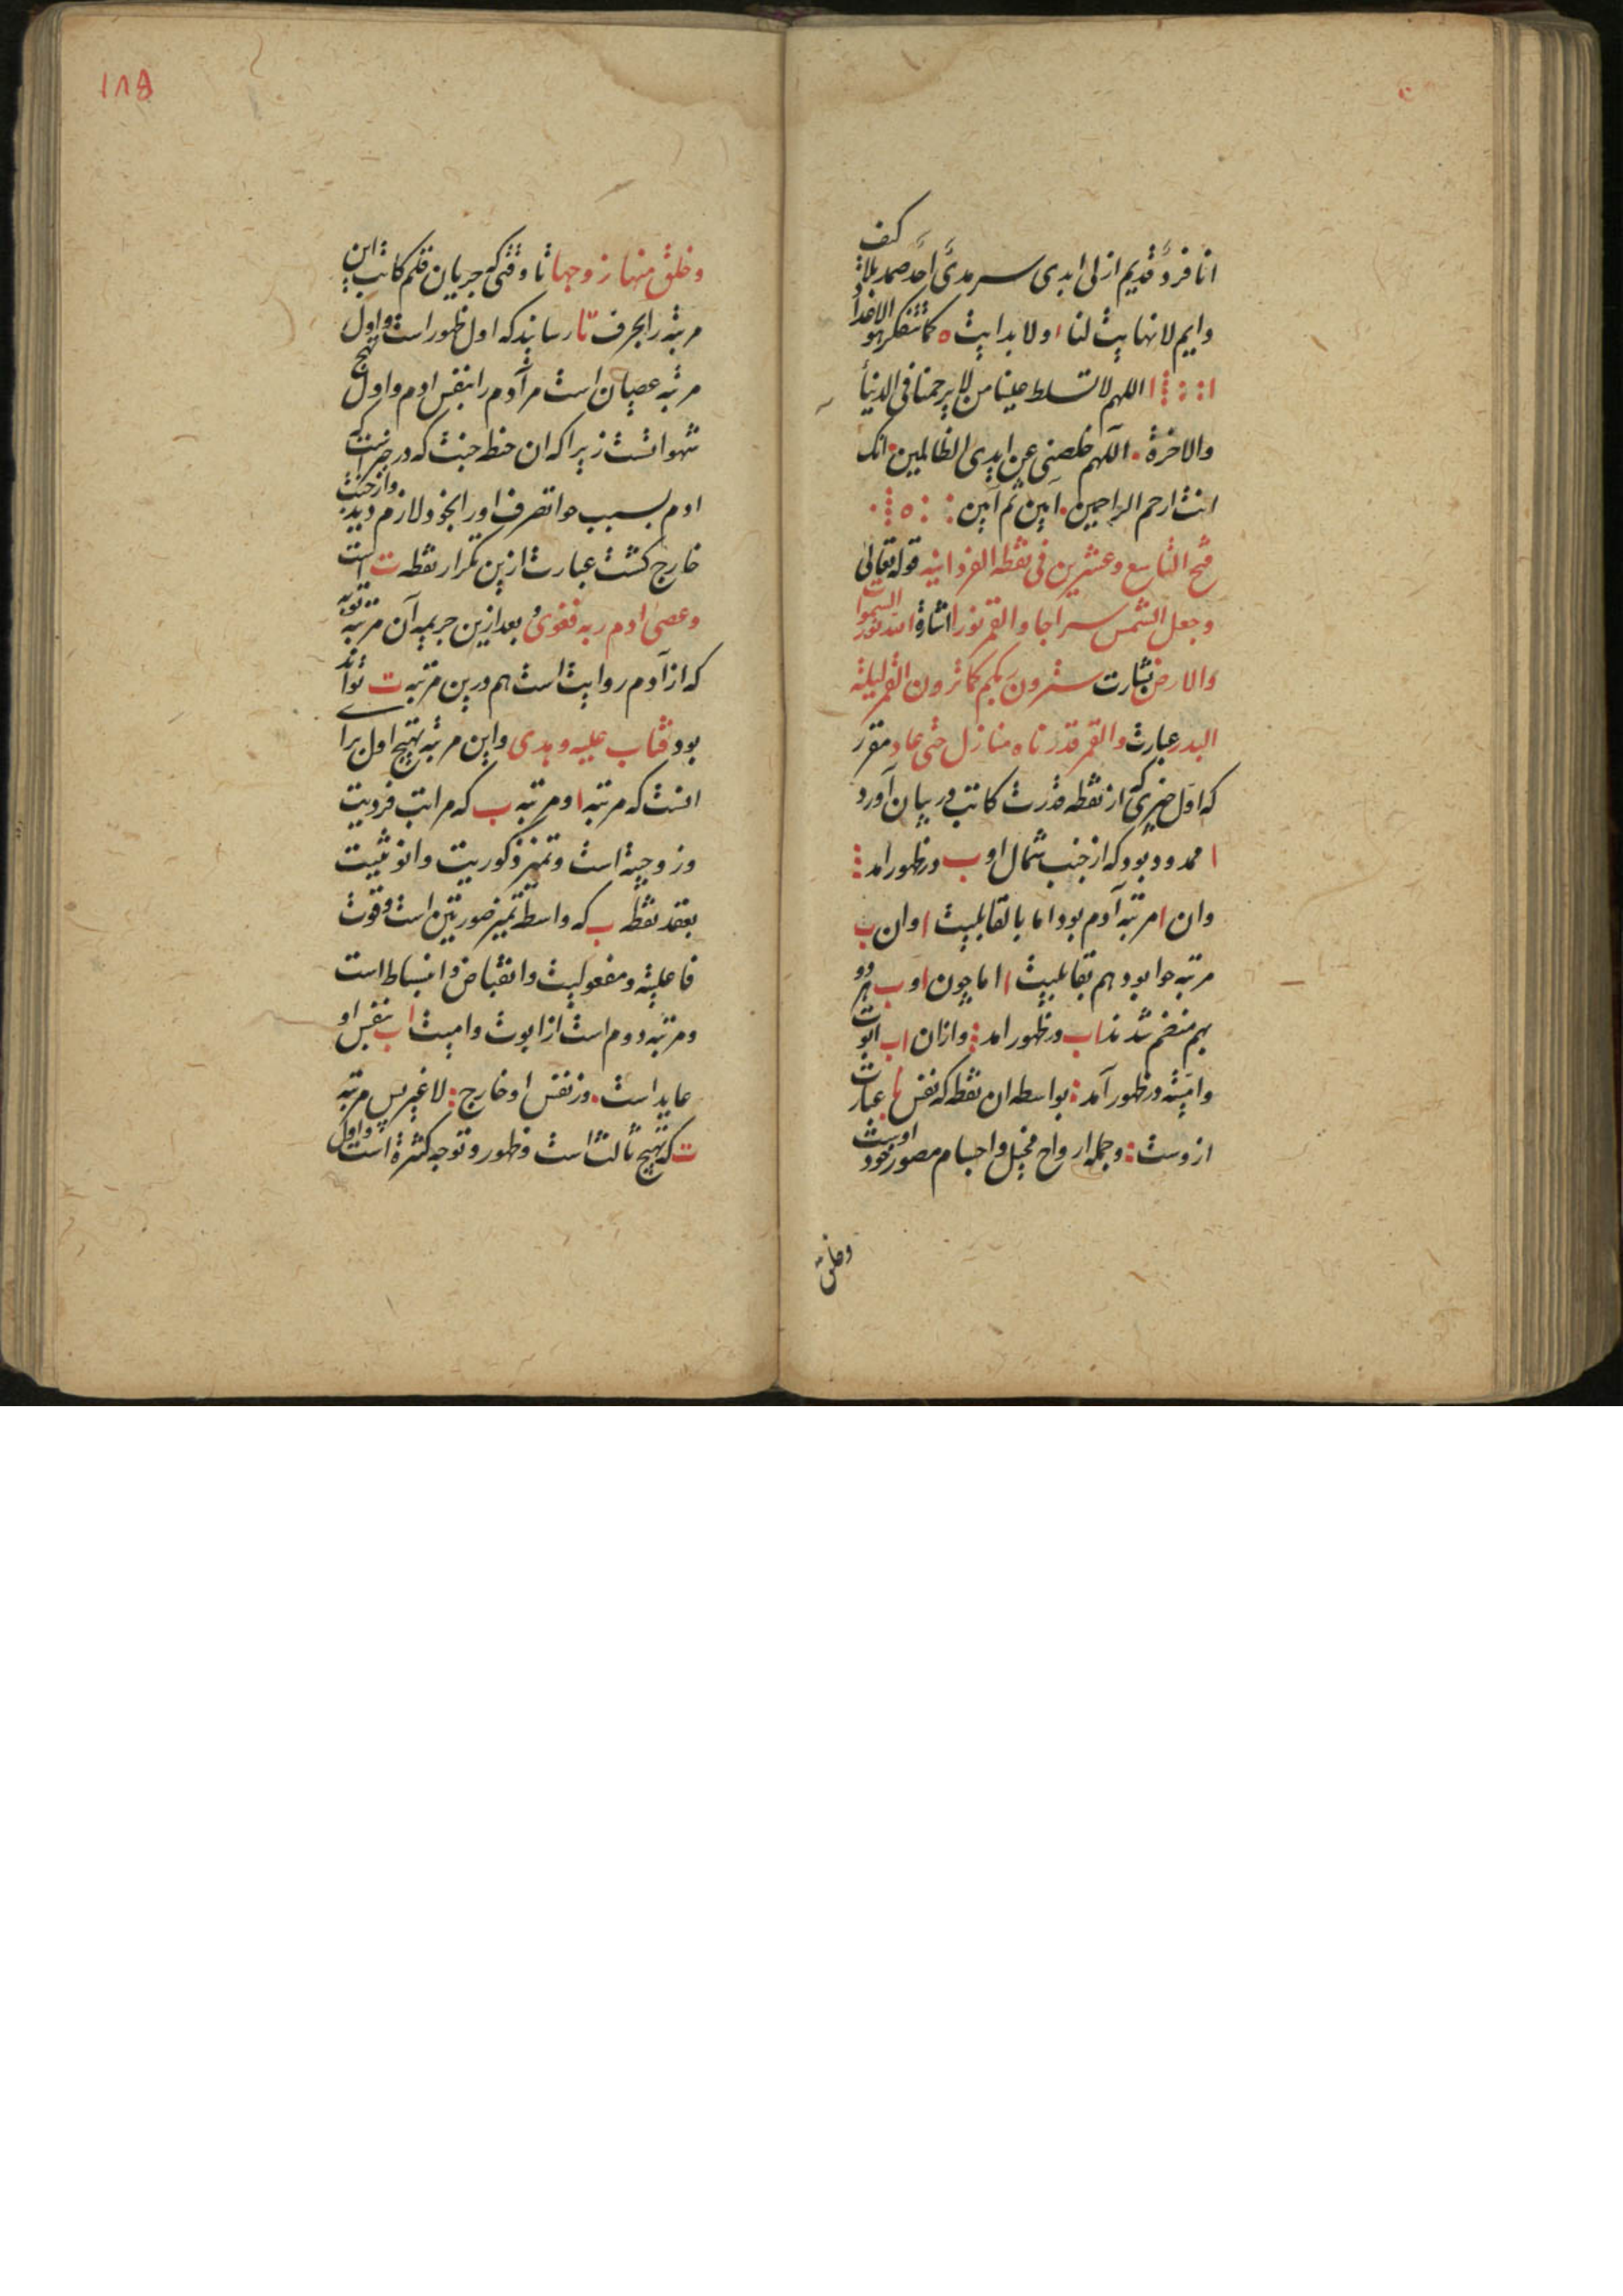 انا فردٌ قدیم ازلی ابدی سرمدیَّ احدَّ صمد بلا کیف
وایم لا نهایت لنا ا ولا بدایت ه کما تتفکر هو الاخدا
اللهم لا تسلط علینا من لا یرحمنا فی الدنیا
والاخرة . اللهم خلصنی عن ایدی الظالمین . انک
انت ارحم الراحمین . آمین ثم آمین
فتح التاسع وعشرین فی نقطه الفردانیه قوله تعالی
وجعل الشمس سراجا والقمر نورا اشارة الله نور السموات
والارض بشارت سترون ربکم کما ترون القمر لیلة
البدر عبارت والقمر قدرناه منازل حتی عاد مقرر
که اول چیزی که از نقطه قدرت کاتب در بیان آورد
ا ممدود بود که از جنب شمال او ب در ظهور امد
وان ا مرتبه آدم بود اما با لقابلیت ا وان ب
مرتبه حوا بود هم بقابلیت ا اما چون ا و ب هر دو
بهم منضم شدند اب در ظهور امد وازان اب ابوت
وامیته در ظهور آمد بواسطه ان نقطه که نفس عبارت
ازوست وجمله ارواح مخیل واجسام مصور خود اوست
وخلق
۱۸۵
وخلق منها زوجها تا وقتی که جریان قلم کاتب این
مرتبه را بحرف تا رساند که اول ظهور است واول نهج
مرتبه عصیان است مر آدم را بنفس ادم واول
شهواتست زیرا که ان حنطه جنت که در
ادم بسبب حوا تصرف اورا بخود لازم دید واز جنت
خارج کشت عبارت ازین تکرار نقطه ت است
وعصی ادم ربه فغوی و بعد ازین جریمه آن مرتبه توبه
که از آدم روایت است هم درین مرتبه ت تواند
بود فتاب علیه وهدی واین مرتبه نهج اول برای
انست که مرتبه ا ومرتبه ب که مراتب فردیت
وزوجیة است وتمیز ذکوریت وانوثیت
بعقد نقطه ب که واسطه تمیز صورتین است وقوت
فاعلیة ومفعولیت وانقباض وانبساط است
ومرتبه دوم است از ابوت وامیت اب بنفس او
عاید است . وز نفس او خارج لا غیر پس مرتبه
ت که نهج ثالث است وظهور وتوجه کثرة است واول